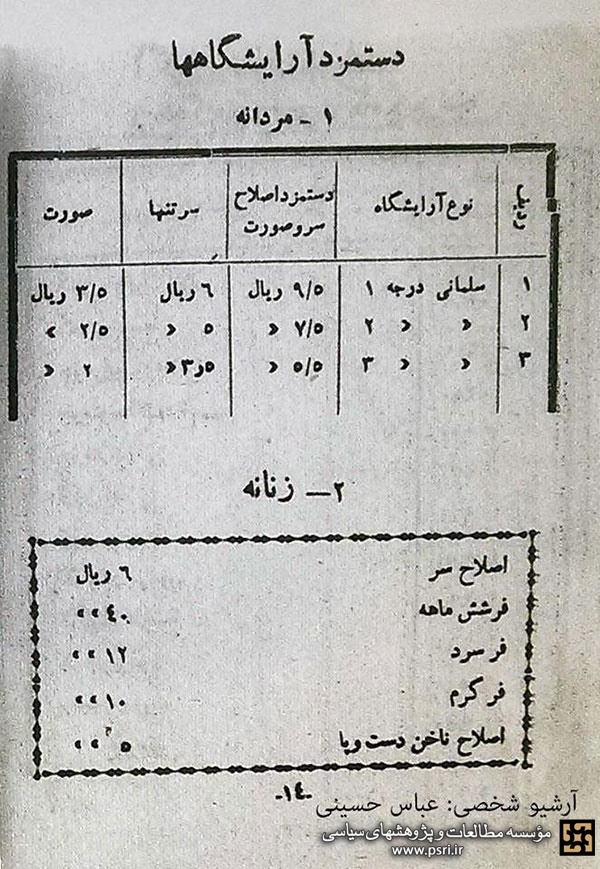 دستمزد آرایشگاهها
۱ - مردانه
ردیف نوع آرایشگاه دستمزد اصلاح سر و صورت سر تنها صورت
۱ سلمانی درجه ۱ ۹/۵ ریال ۶ ریال ۳/۵ ریال
۲ » » ۲ ۷/۵ » ۵ » ۲/۵ »
۳ » » ۳ ۵/۵ » ۳ر۵ » ۲ »
۲ — زنانه
اصلاح سر ۶ ریال
فر شش ماهه ۴۰ »»
فر سرد ۱۲ »»
فر گرم ۱۰ »»
اصلاح ناخن دست و پا ۵ »»
-۱۴-
آرشیو شخصی: عباس حسینی
مؤسسه مطالعات و پژوهشهای سیاسی
www.psri.ir